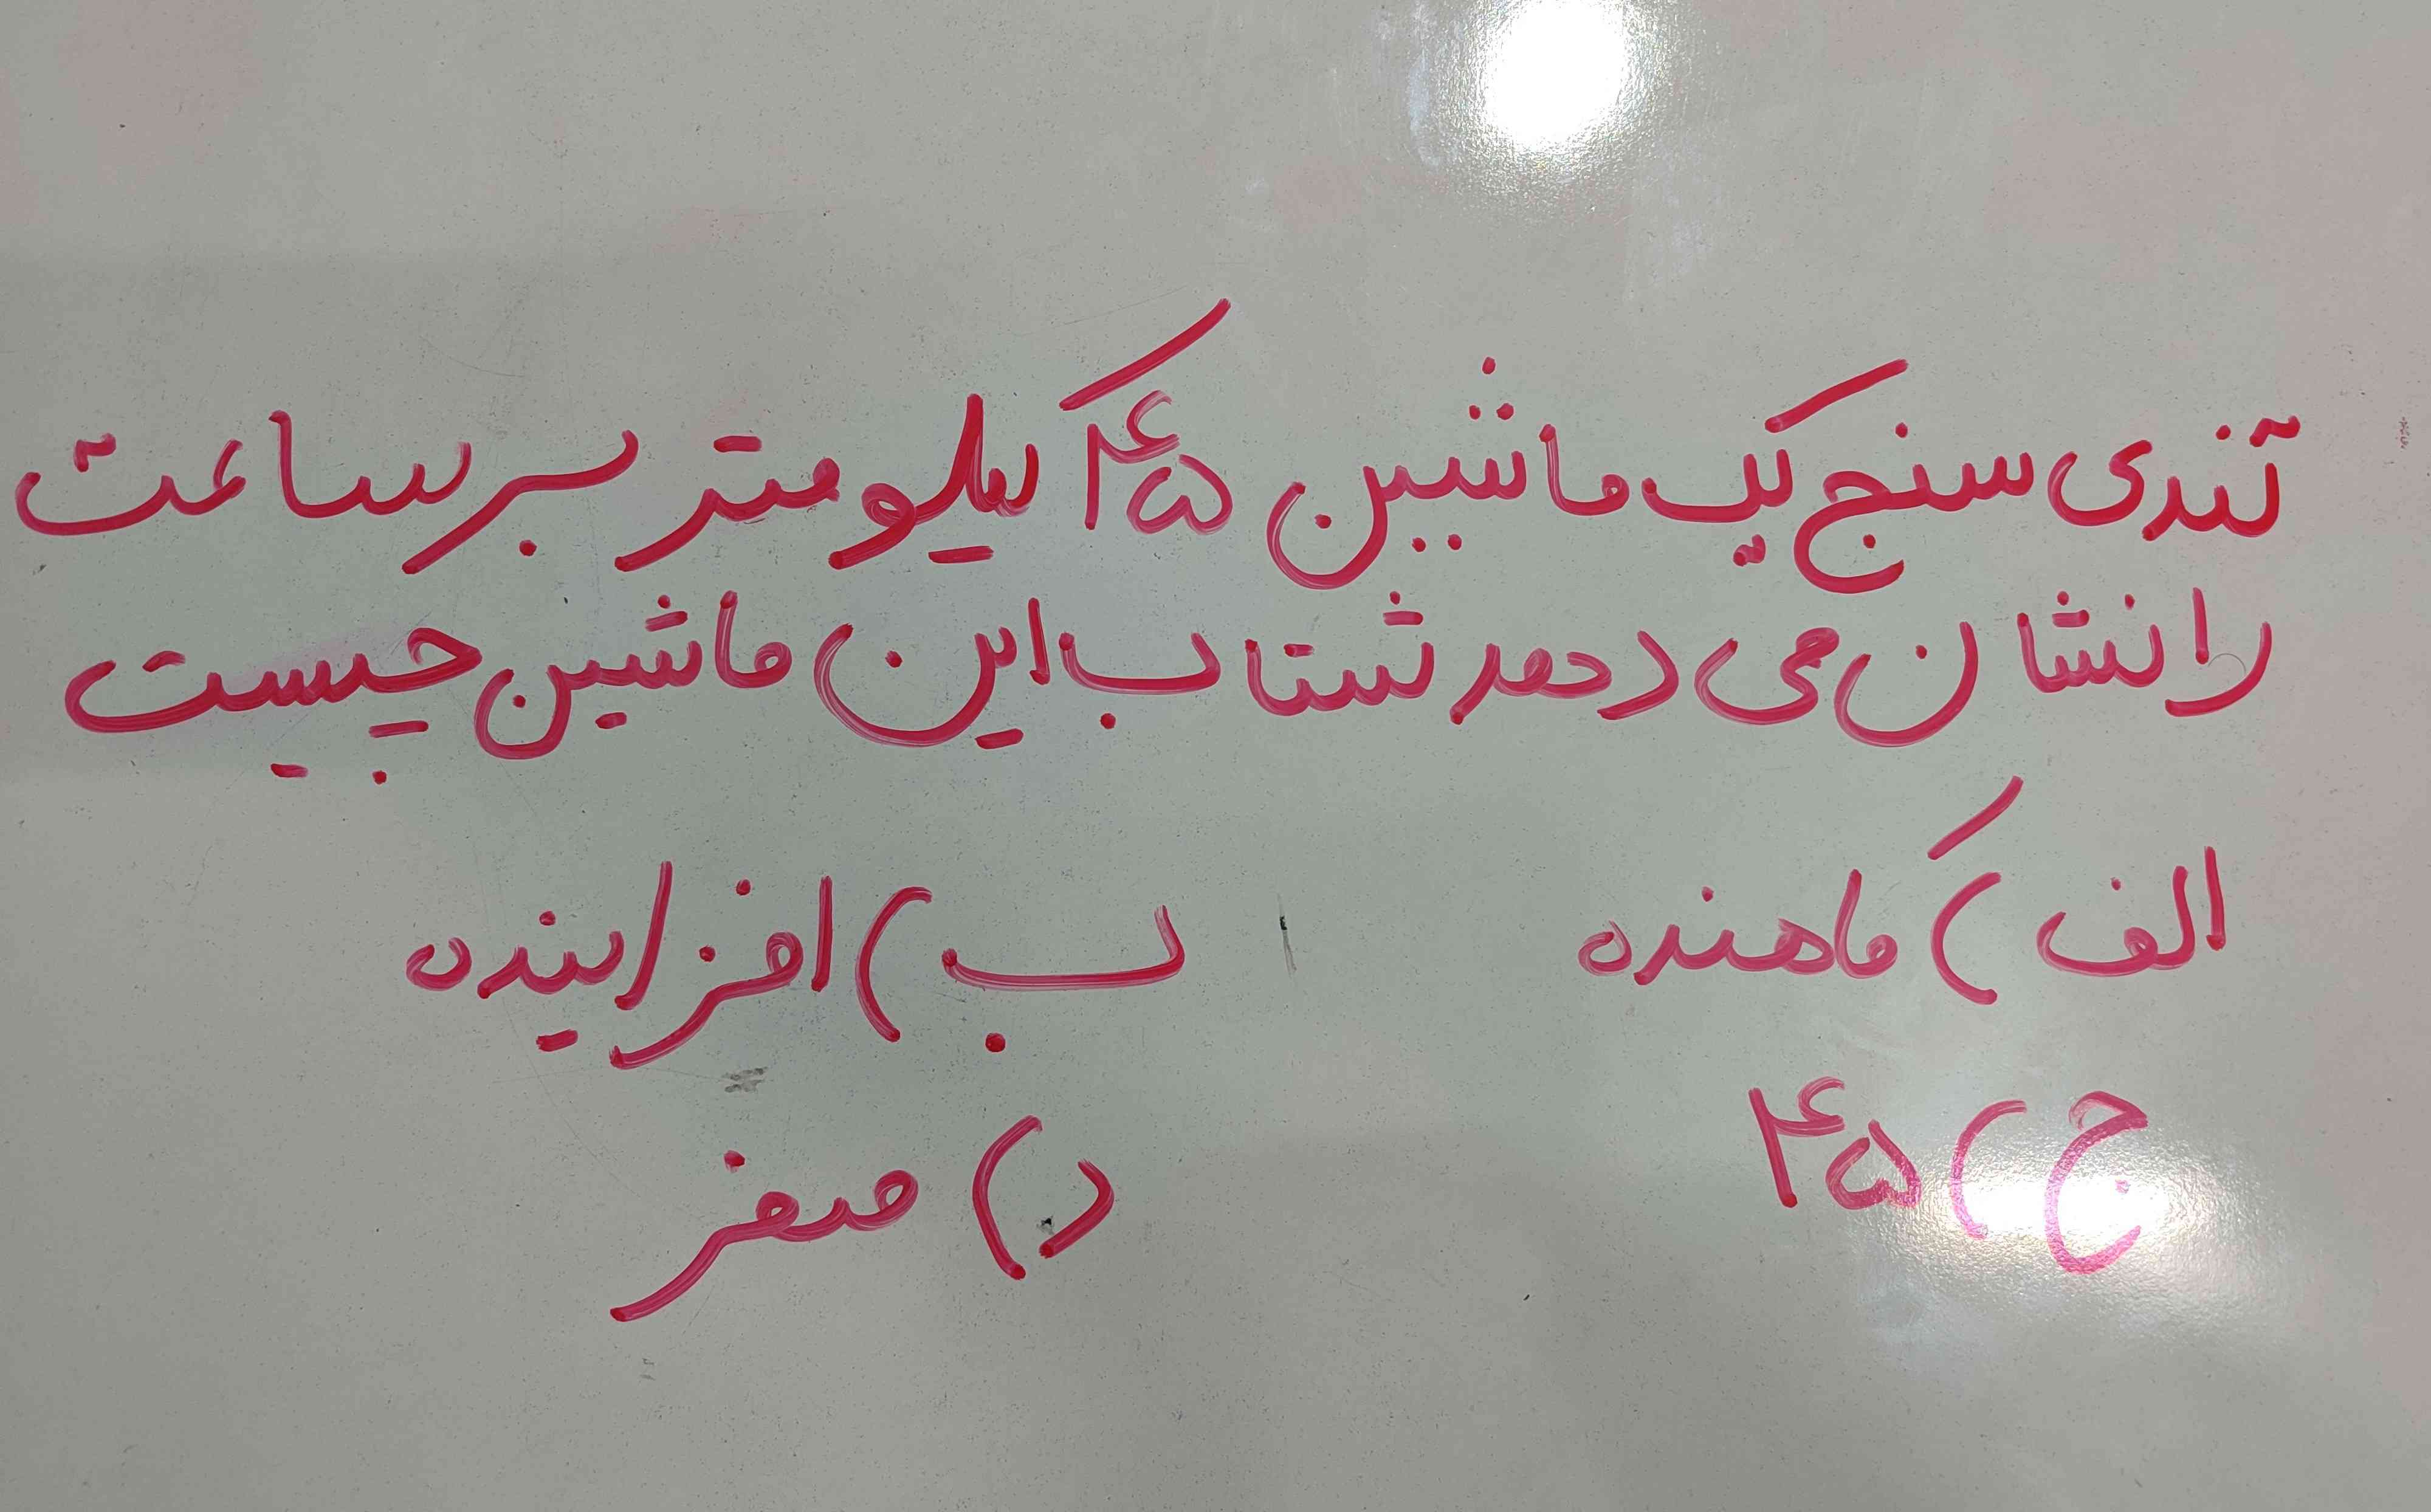 تندی سنج یک ماشین ۴۵ کیلومتر بر ساعت
را نشان می دهد شتاب این ماشین چیست
الف) کاهنده ب) افزاینده
ج) ۴۵ د) صفر